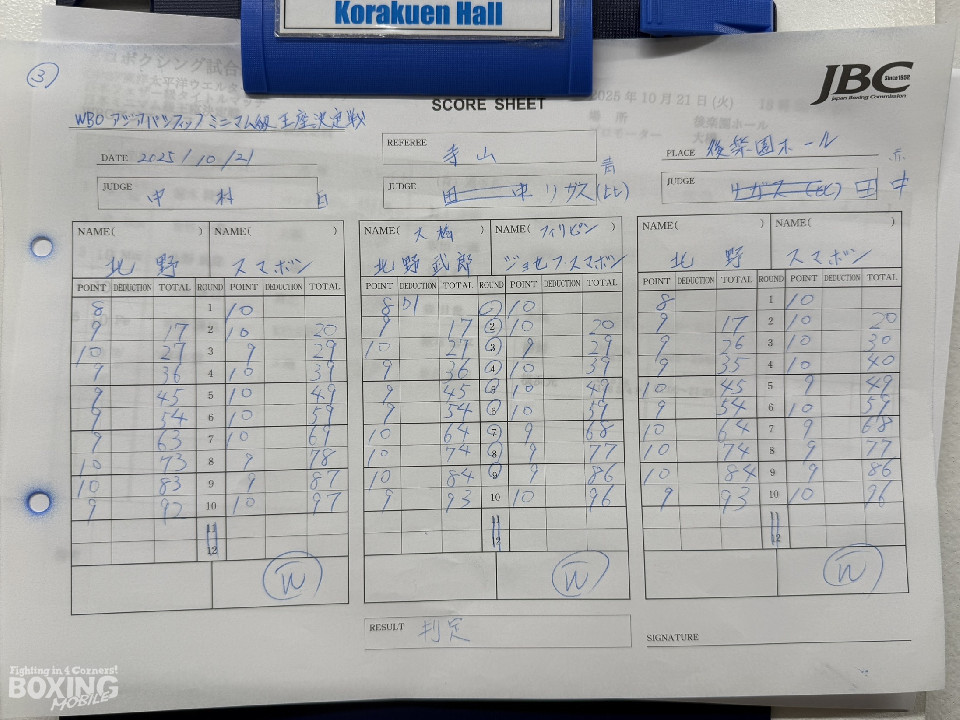 Korakuen Hall
③
ボクシング試合
東洋太平洋ウエルタ
JBC Since 1952
Japan Boxing Commission
SCORE SHEET
2025年10月21日(火) 18時
場所 後楽園ホール
WBO アジアパシフィックミニマム級王座決定戦
DATE 2025/10/21
REFEREE 寺山
PLACE 後楽園ホール
JUDGE 中村 白
JUDGE 田中 リガス(比) 青
JUDGE リガス(比) 田中 赤
NAME( ) NAME( ) NAME( 大橋 ) NAME( フィリピン ) NAME( ) NAME( )
北野 スマボン 北野武郎 ジョセフスマボン 北野 スマボン
POINT DEDUCTION TOTAL ROUND POINT DEDUCTION TOTAL POINT DEDUCTION TOTAL ROUND POINT DEDUCTION TOTAL POINT DEDUCTION TOTAL ROUND POINT DEDUCTION TOTAL
8 1 10 8 D1 1 10 8 1 10
9 17 2 10 20 9 17 2 10 20 9 17 2 10 20
10 27 3 9 29 10 27 3 9 29 9 26 3 10 30
9 36 4 10 39 9 36 4 10 39 9 35 4 10 40
9 45 5 10 49 9 45 5 10 49 10 45 5 9 49
9 54 6 10 59 9 54 6 10 59 9 54 6 10 59
9 63 7 10 69 10 64 7 9 68 10 64 7 9 68
10 73 8 9 78 10 74 8 9 77 10 74 8 9 77
10 83 9 9 87 10 84 9 9 86 10 84 9 9 86
9 92 10 10 97 9 93 10 10 96 9 93 10 10 96
11 11 11
12 12 12
W W W
RESULT 判定
SIGNATURE
Fighting in 4 Corners!
BOXING
MOBILE